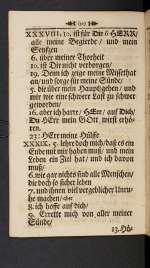 XXXVIII. 10. ist für Dir ô HERR/
alle meine Begierde / und mein
Seuffzen
6. über meiner Thorheit
10. ist Dir nicht verborgen/
19. Denn ich zeige meine Missethat
an/ und sorge für meine Sünde/
5. die über mein Haupt gehen / und
mir als eine schwere Last zu schwer
geworden/
16. aber ich harre / HErr/ auf Dich/
Du HErr mein GOtt wirst erhö-
ren.
23: HErr meine Hülffe
XXXIX. 5. lehre doch mich/ daß es ein
Ende mit mir haben muß/ und mein
Leben ein Ziel hat/ und ich davon
muß/
6. wie gar nichts sind alle Menschen/
die doch so sicher leben
7. und ihnen viel vergeblicher Unru-
he machen/ aber
8. ich hoffe auf Dich/
9. Errette mich von aller meiner
Sünde/
13. Hö-